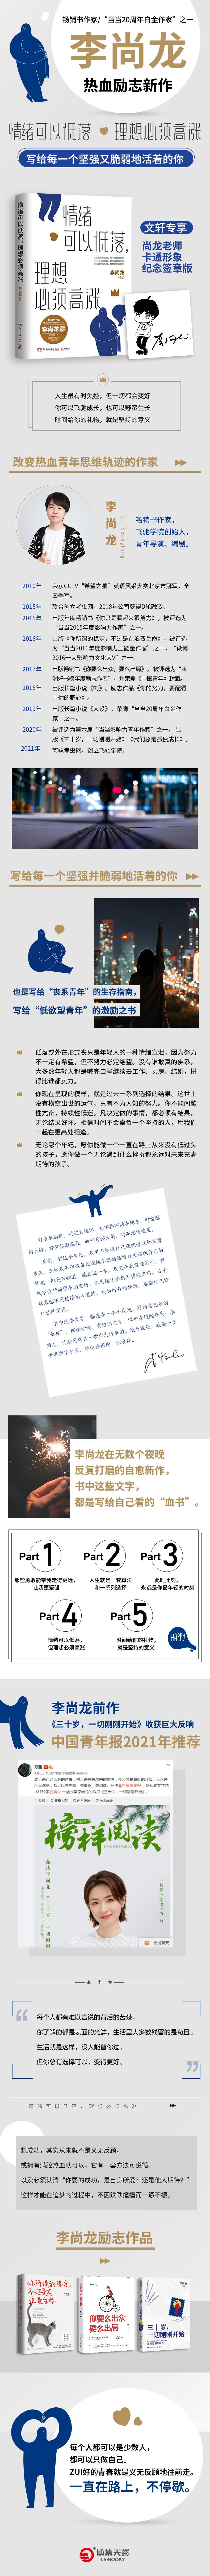 畅销书作家/“当当20周年白金作家”之一
李尚龙
热血励志新作
情绪可以低落 理想必须高涨
写给每一个坚强又脆弱地活着的你
情绪可以低落，理想必须高涨
情绪
可以低落，
理想
必须高涨
李尚龙
文轩专享
尚龙老师
卡通形象
纪念签章版
人生虽有时失控，但一切都会变好
你可以飞驰成长，也可以野蛮生长
时间给你的礼物，就是坚持的意义
改变热血青年思维轨迹的作家
李尚龙
Li Shanglong
畅销书作家，
飞驰学院创始人，
青年导演、编剧。
2010年 荣获CCTV“希望之星”英语风采大赛北京市冠军，全国季军。
2015年 联合创立考虫网，2018年公司获得D轮融资。
2015年 出版年度畅销书《你只是看起来很努力》，被评选为“当当2015年度影响力作家”之一。
2016年 出版《你所谓的稳定，不过是在浪费生命》，被评选为“当当2016年度影响力正能量作家”之一，“微博2016十大影响力文化大V”之一。
2017年 出版畅销书《你要么出众，要么出局》，被评选为“亚洲好书榜年度励志作者”，并荣登《中国青年》封面。
2018年 出版长篇小说《刺》、励志作品《你的努力，要配得上你的野心》。
2019年 出版长篇小说《人设》，荣膺“当当20周年白金作家”之一。
2020年 被评选为第六届“当当影响力青年作家”之一，出版《三十岁，一切刚刚开始》《我们总是孤独成长》。
2021年 离职考虫网，创立飞驰学院。
写给每一个坚强并脆弱地活着的你
也是写给“丧系青年”的生存指南，
写给“低欲望青年”的激励之书
低落或外在形式丧只是年轻人的一种情绪宣泄，因为努力不一定有希望，但不努力必定绝望。没有谁敢真的佛系，大多数年轻人都是喊完口号继续去工作、买房、结婚，拼得比谁都卖力。
你现在呈现的模样，就是过去一系列选择的结果。这世上没有横空出世的运气，只有不为人知的努力。你不能间歇性亢奋，持续性低迷。凡决定做的事情，都必须有结果，无论结果好坏。相信时间不会辜负一个坚持的人，愿我们一起在更高处相逢。
无论哪个年纪，愿你能做一个一直在路上从来没有低过头的孩子，愿你做一个无论遇到什么挫折都永远对未来充满期待的孩子。
李尚龙在无数个夜晚
反复打磨的自愈新作，
书中这些文字，
都是写给自己看的“血书”。
Part 1
那些勇敢能带我走得更远，
让我更坚强
Part 2
人生就是一套算法
和一系列选择
Part 3
此时此刻，
永远是你最年轻的时刻
Part 4
情绪可以低落，
但理想必须高涨
Part 5
时间给你的礼物，
就是坚持的意义
HAPPY
李尚龙前作
《三十岁，一切刚刚开始》收获巨大反响
中国青年报2021年推荐
榜样阅读
李尚龙
每个人都有难以言说的背后的苦楚，
你了解的都是表面的光鲜，生活里大多数残留的是苟且。
生活就是这样，没人能替你过，
但你总有选择可以，变得更好。
情绪可以低落，理想必须高涨
想成功，其实从来就不是义无反顾，
或拥有满腔热血就可以，它有一套方法可遵循。
以及必须认清“你要的成功，是自身所爱？还是他人期待？”
这样才能在追梦的过程中，不因跌跌撞撞而一蹶不振。
李尚龙励志作品
你所谓的稳定，不过是在浪费生命
你要么出众
要么出局
三十岁，
一切刚刚开始
每个人都可以是少数人，
都可以只做自己。
ZUI好的青春就是义无反顾地往前走。
一直在路上，不停歇。
博集天卷
CS-BOOKY